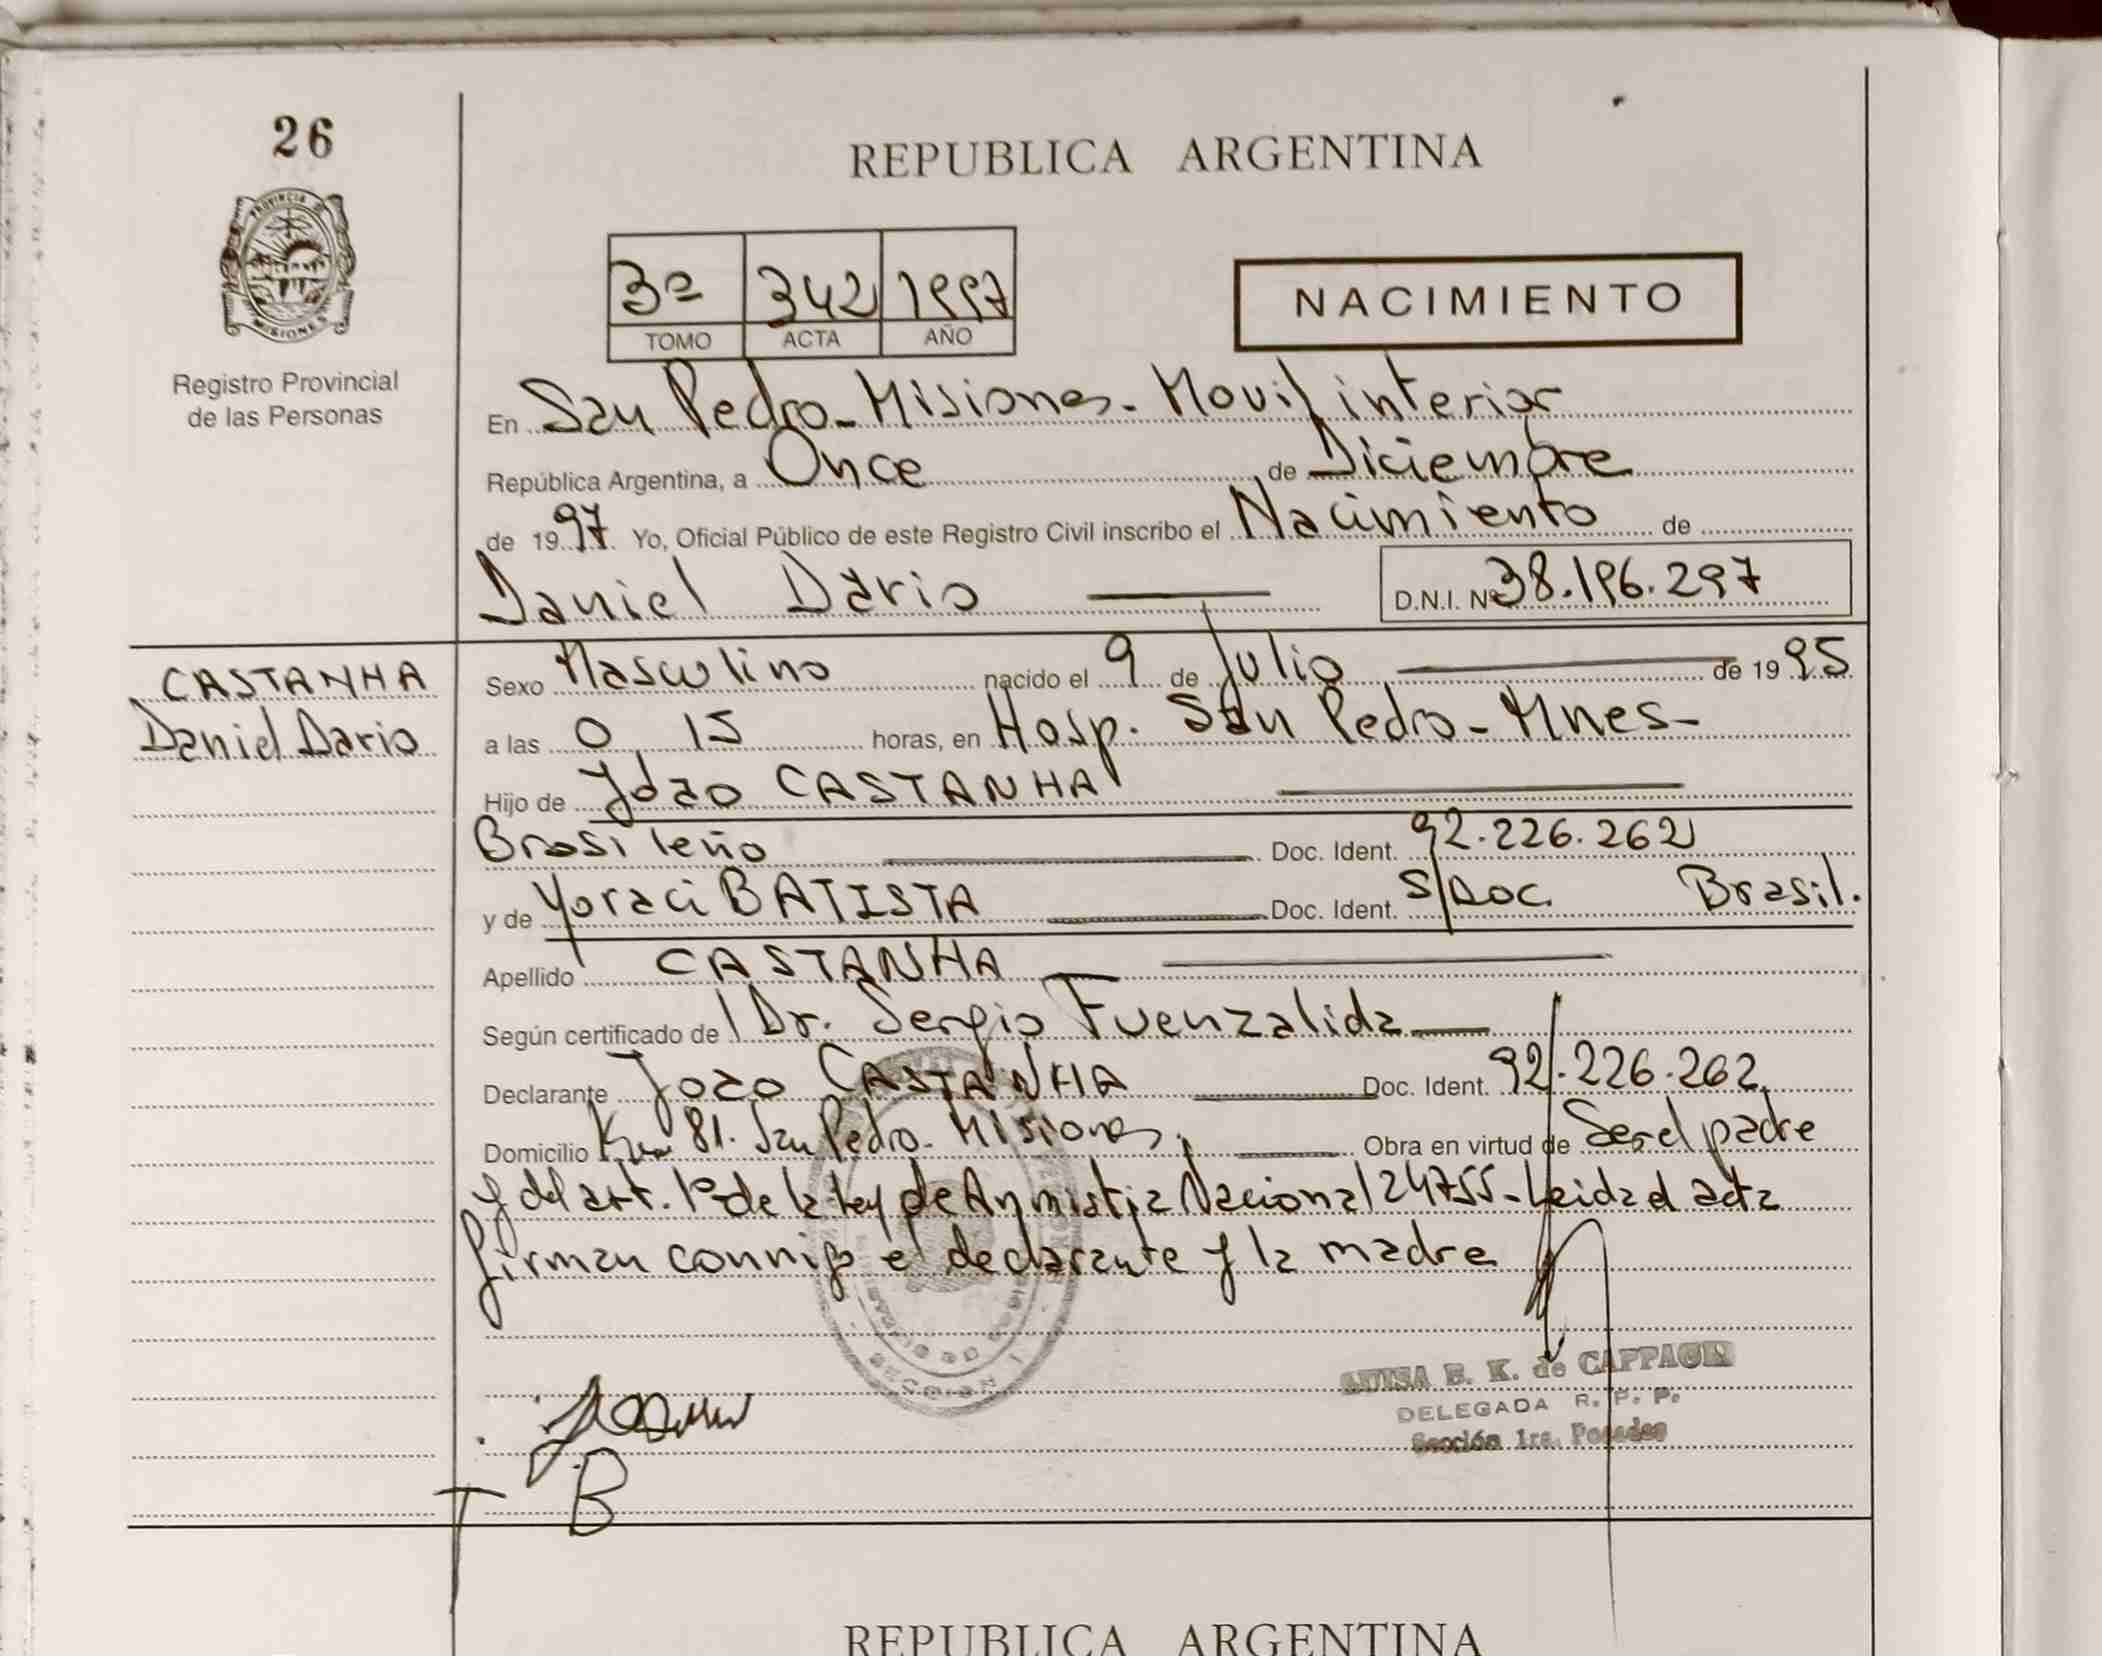 26
REPUBLICA ARGENTINA
PROVINCIA DE
MISIONES
Registro Provincial
de las Personas
3º 342 1997
TOMO ACTA AÑO
NACIMIENTO
En San Pedro - Misiones - Movil interior
República Argentina, a Once de Diciembre
de 1997 Yo, Oficial Público de este Registro Civil inscribo el Nacimiento de
Daniel Dario D.N.I. Nº 38.196.297
CASTANHA
Daniel Dario
Sexo Masculino nacido el 9 de Julio de 1995
a las 0,15 horas, en Hosp. San Pedro - Mnes -
Hijo de Joao CASTANHA
Brasileño Doc. Ident. 92.226.262
y de Yoraci BATISTA Doc. Ident. S/Doc. Brasil.
Apellido CASTANHA
Según certificado del Dr. Sergio Fuenzalida
Declarante Joao CASTANHA Doc. Ident. 92.226.262
Domicilio Km 81. San Pedro - Misiones. Obra en virtud de Ser el padre
y del art. 1º de la ley de Anmistia Nacional 24755 - Leida el acta
firman conmigo el declarante y la madre
B. K. de CAPPAGLI
DELEGADA R. P. P.
Sección 1ra. Posadas
B
REPUBLICA ARGENTINA